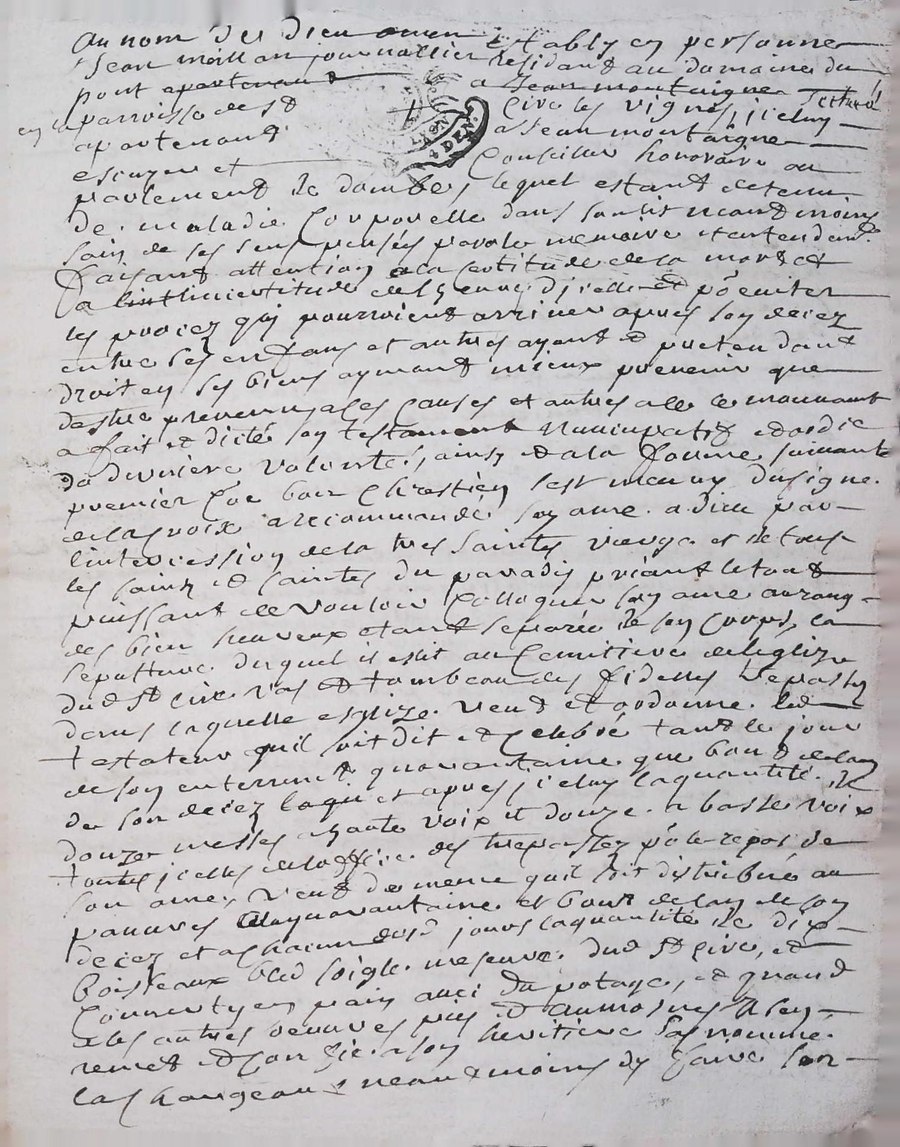 Au nom de dieu amen Establyen personne
Jean moillan journallier residant au domaine du
pont apartenant a Jean montaigne
parroisse de st Cire les vignes, jceluy
apartenant a Jean montaigne
escuyer et Conseiller honoraire au
parlement de dombes, lequel estant detenu
de maladie Corporelle dans son lit neantmoins
sain de ses sens pensées parole memoire et entendemt
faisant attention a la certitude de la mort et
a l'incertitude de l'heure d'jcelle et po eviter
les procez quj pourroient arriver apres son decez
entre ses enfans et autres ayant et pretendant
droit en ses biens aymant mieux prevenir que
destre prevenu a les Causes et autres a ce le mouvant
a fait et dicté son testament nuncupatif et ordre
de derniere volonte, ainsy et a la forme suivante
premier Coe bon Chrestien sest muny du signe
de la croix a recommandé son ame a dieu par
l'intercession de la tres sainte vierge et de tous
les saints et saintes du paradis priant le tout
puissant de vouloir Colloquer son ame au rang
des bien heureux etant separée de son corps, la
sepulture duquel il eslit au Cemitiere de leglize
dud st cire vas et tombeau des fidelles trepassez
dans laquelle esglize veut et ordonne led
testateur quil soit dit et Celebré tant le jour
de son enterremt quarantaine que bout de lan
de son decez et apres jceluy la quantité de
douze messes a haute voix et douze a basse voix
toutes jcelles de loffice des trepassez po le repos de
son ame, veut de meme quil soit distribué au
pauvres a la quarantaine et bout de lan de son
decez et a chacun desd jours la quantité de dix
boisseaux bled soigle mesure dud st cire, et
Converty en pain avec du potage, et quand
a les autres oeuvres pies et aumosnes il sen
remet et confie a son heritiere bas nommé
la chargeant neantmoins de faire son